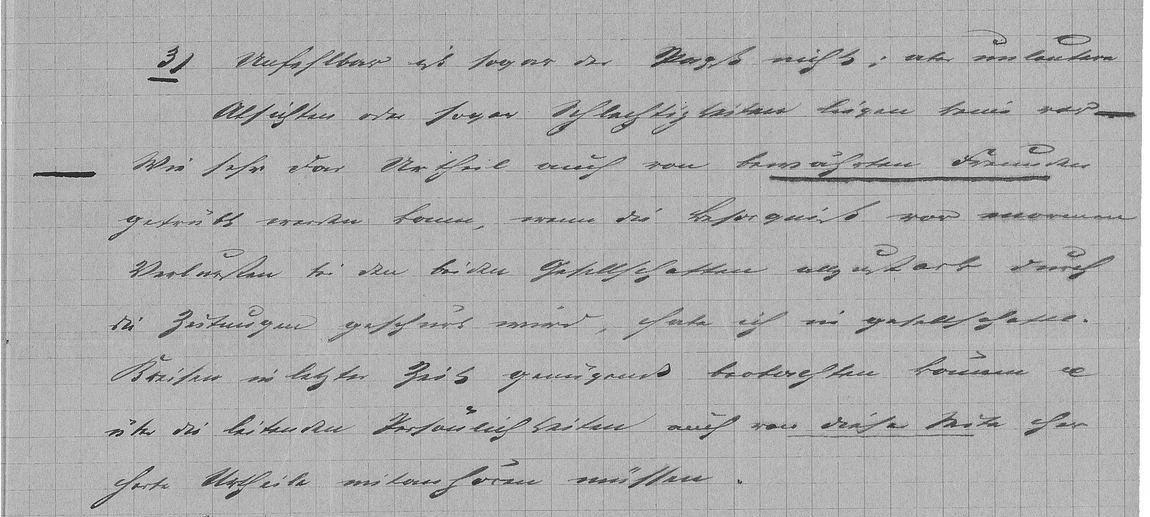 3) Unfehlbar ist sogar der Papst nicht; aber unlautere
Absichten oder sogar Schlechtigkeiten liegen keine vor —
— Wie sehr das Urtheil auch von bewährten Freunden
getrübt werden kann, wenn die Besorgniß vor enormen
Verlusten bei den beiden Gesellschaften allzustark durch
die Zeitungen geschürt wird, habe ich in gesellschaftl.
Kreisen in letzter Zeit genügend beobachten können &
über die leitenden Persönlichkeiten auch von dieser Seite her
harte Urtheile mitanhören müssen.